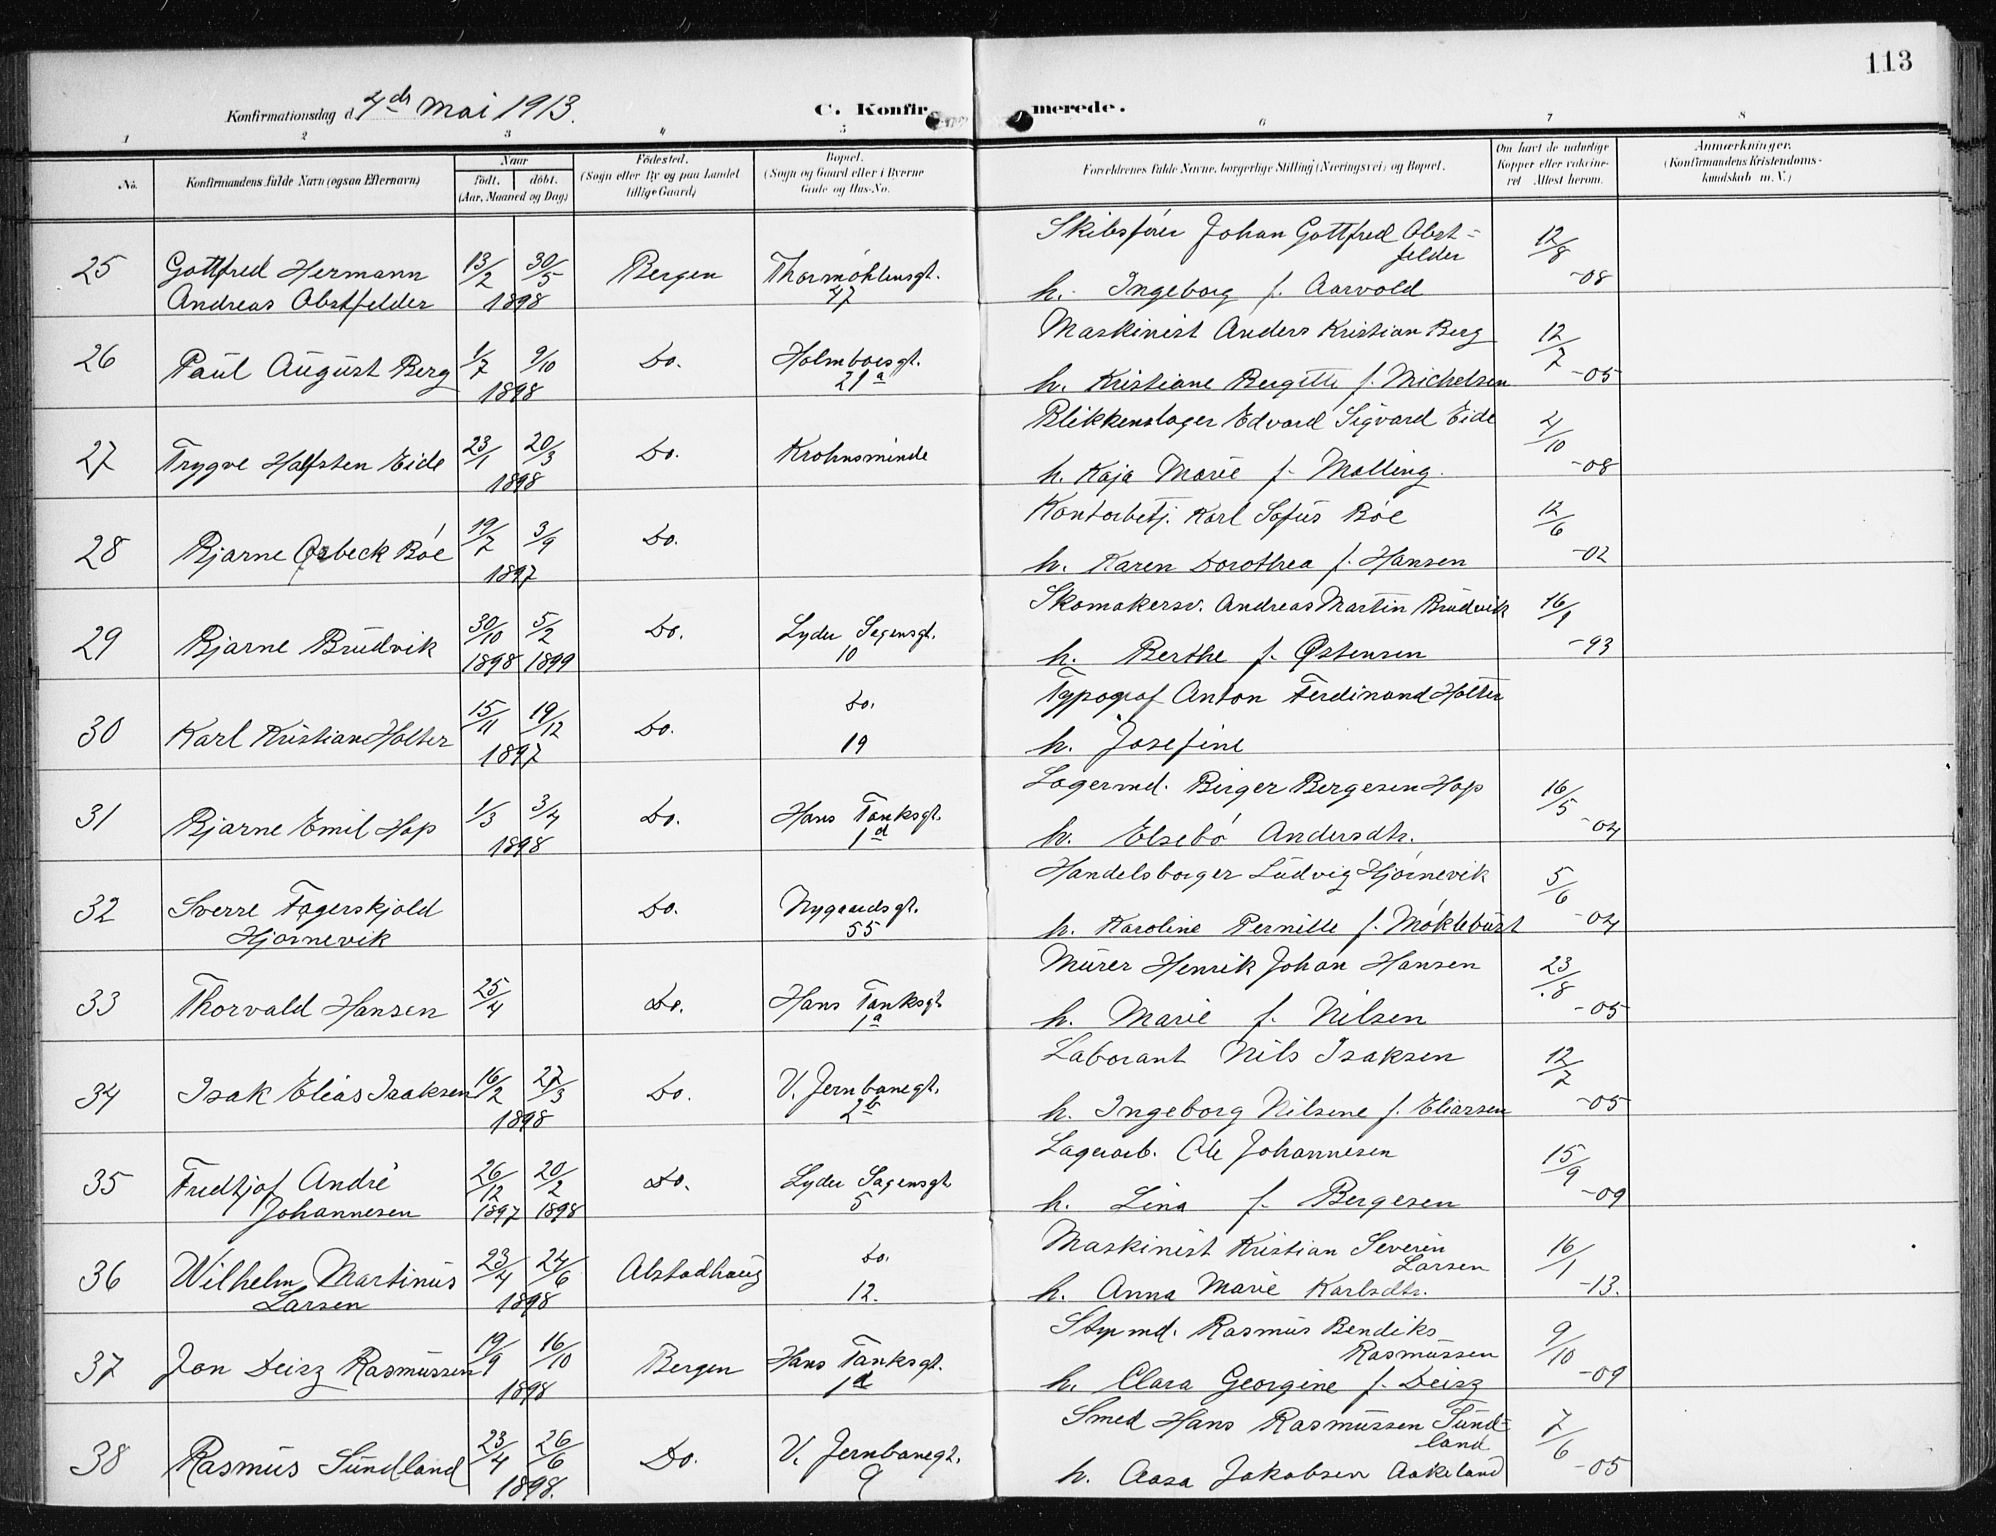 113
Konfirmationsdag d. 4de Mai 1913.
C. Konfirmerede.
1 2 3 4 5 6 7 8
No.
Konfirmandens fulde Navn (ogsaa Efternavn)
Naar
født. døbt.
(Aar, Maaned og Dag)
Fødested.
(Sogn eller By og paa Landet
tillige Gaard)
Bopæl.
(Sogn og Gaard eller i Byerne
Gade og Hus-No.
Forældrenes fulde Navne, borgerlige Stilling (Næringsvei) og Bopæl.
Om havt de naturlige
Kopper eller vakcine-
ret Attest herom.
Anmærkninger.
(Konfirmandens Kristendoms-
kundskab m. V.)
25 Gottfred Hermann 13/2 30/5 Bergen Thormøhlensgt. Skibsfører Johan Gottfred Obst- 12/8
felder
Andreas Obstfelder 1898 47 h. Ingeborg f. Aarvold -08
26 Paul August Berg 1/7 9/10 Do. Holmboesgt. Maskinist Anders Kristian Berg 12/7
1898 21a h. Kristiane Bergitte f. Michelsen -05
27 Trygve Halfsten Eide 23/1 20/3 Do. Krohnsminde Blikkenslager Edvard Sigvard Eide 4/10
1898 h. Kaja Marie f. Malling. -08
28 Bjarne Ørbeck Bøe 19/7 3/9 Do. Kontorbetj. Karl Sofus Bøe 12/6
1897 h. Karen Dorothea f. Hansen -02
29 Bjarne Brudvik 30/10 5/2 Do. Lyder Sagensgt. Skomakersv. Andreas Martin Brudvik 16/9
1898 1899 10 h. Berthe f. Østensen -93
30 Karl Kristian Holter 15/11 19/12 Do. Do. Typograf Anton Ferdinand Holter
1897 19 h. Josefine
31 Bjarne Emil Hop 1/3 3/4 Do. Hans Tanksgt. Lagermd. Birger Bergesen Hop 16/5
1898 1d h. Elsebø Andersdtr. -04
32 Sverre Fagerskjold Do. Nygaardsgt. Handelsborger Ludvig Hjørnevik 5/6
Hjørnevik 55 h. Karoline Pernille f. Møklebust -04
33 Thorvald Hansen 25/4 Do. Hans Tanksgt. Murer Henrik Johan Hansen 23/8
1a h. Marie f. Nilsen -05
34 Isak Elias Isaksen 16/2 27/3 Do. V. Jernbanegt. Laborant Nils Isaksen 12/7
1898 2b h. Ingeborg Nilsine f. Eliassen -05
35 Fredtjof André 26/12 20/2 Do. Lyder Sagensgt. Lagerarb. Ole Johannesen 15/9
Johannesen 1897 1898 5 h. Lina f. Bergesen -09
36 Wilhelm Martinus 23/4 24/6 Alstadhaug Do. Maskinist Kristian Severin 16/1
Larsen
Larsen 1898 12. h. Anna Marie Karlsdtr. -13.
37 Jon Deisz Rasmussen 19/9 16/10 Bergen Hans Tanksgt. Styrmd. Rasmus Bendiks 9/10
Rasmussen
1898 1d h. Clara Georgine f. Deisz -09
38 Rasmus Sundland 23/4 26/6 Do. V. Jernbanegt. Smed Hans Rasmussen Sund- 7/6
land
1898. 9 h. Aasa Jakobsen Aakeland -05